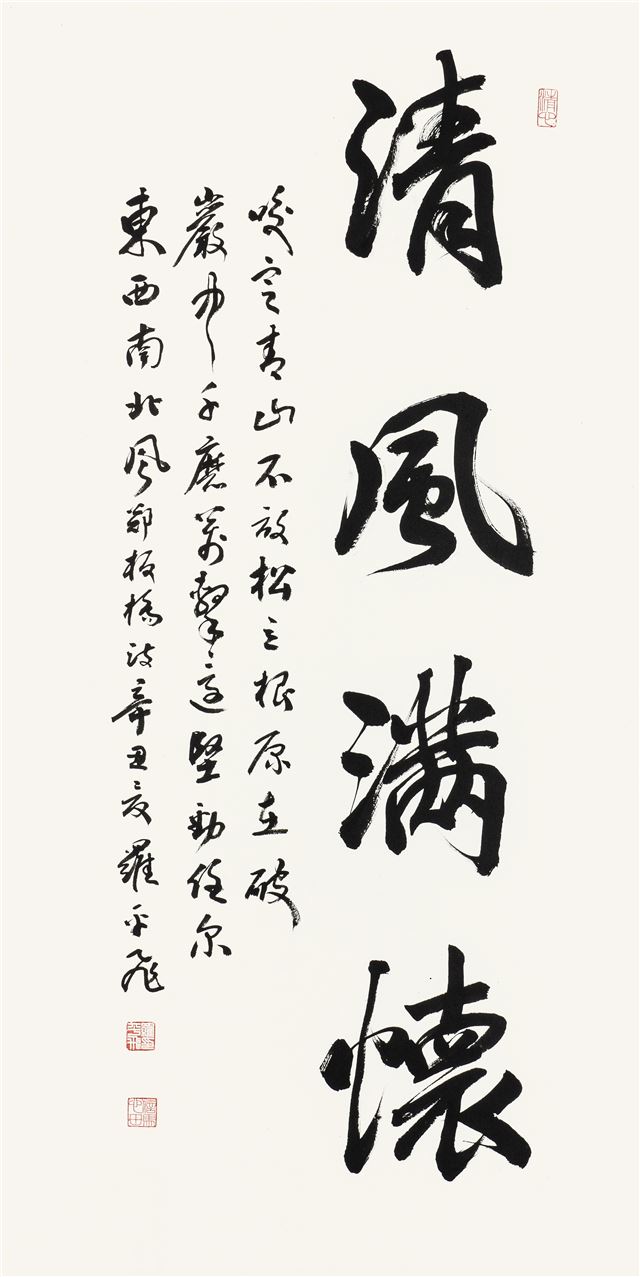 清風滿懷
咬定青山不放松立根原在破
巖中千磨萬擊還堅勁任尔
東西南北风鄭板橋詩辛丑夏羅平飛